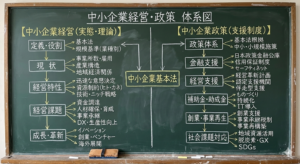 中小企業経営・政策 体系図
【中小企業経営(実態・理論)】
定義・役割
基本法
規模基準(業種別)
現状
事業所数・雇用
産業構造
地域経済関係
経営特性
迅速な意思決定
経営課題
資金調達
人材確保・育成
事業承継
DX・生産性向上
成長・革新
イノベーション
創業・ベンチャー
海外展開
中小企業基本法
【中小企業政策(支援制度)】
政策体系
基本法根拠
中小・小規模施策
金融支援
日本政策金融公庫
信用保証制度
セーフティネット
経営支援
経営革新計画
認定支援機関
伴走型支援
補助金・助成金
ものづくり
持続化
IT導入
創業・事業再生
創業支援
事業承継
事業再構築
社会課題対応
地域資源活用
脱炭素・GX
SDGs